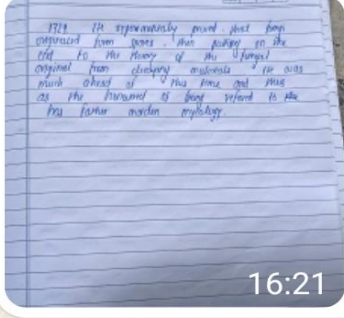 1729. He experimentally proved that fungi
originated from spores. Thus putting an the
end to the theory of the fungal
original from decaying materials He was
much ahead of his time and
as the honoured of being referd to
has father morden mycology.
16:21